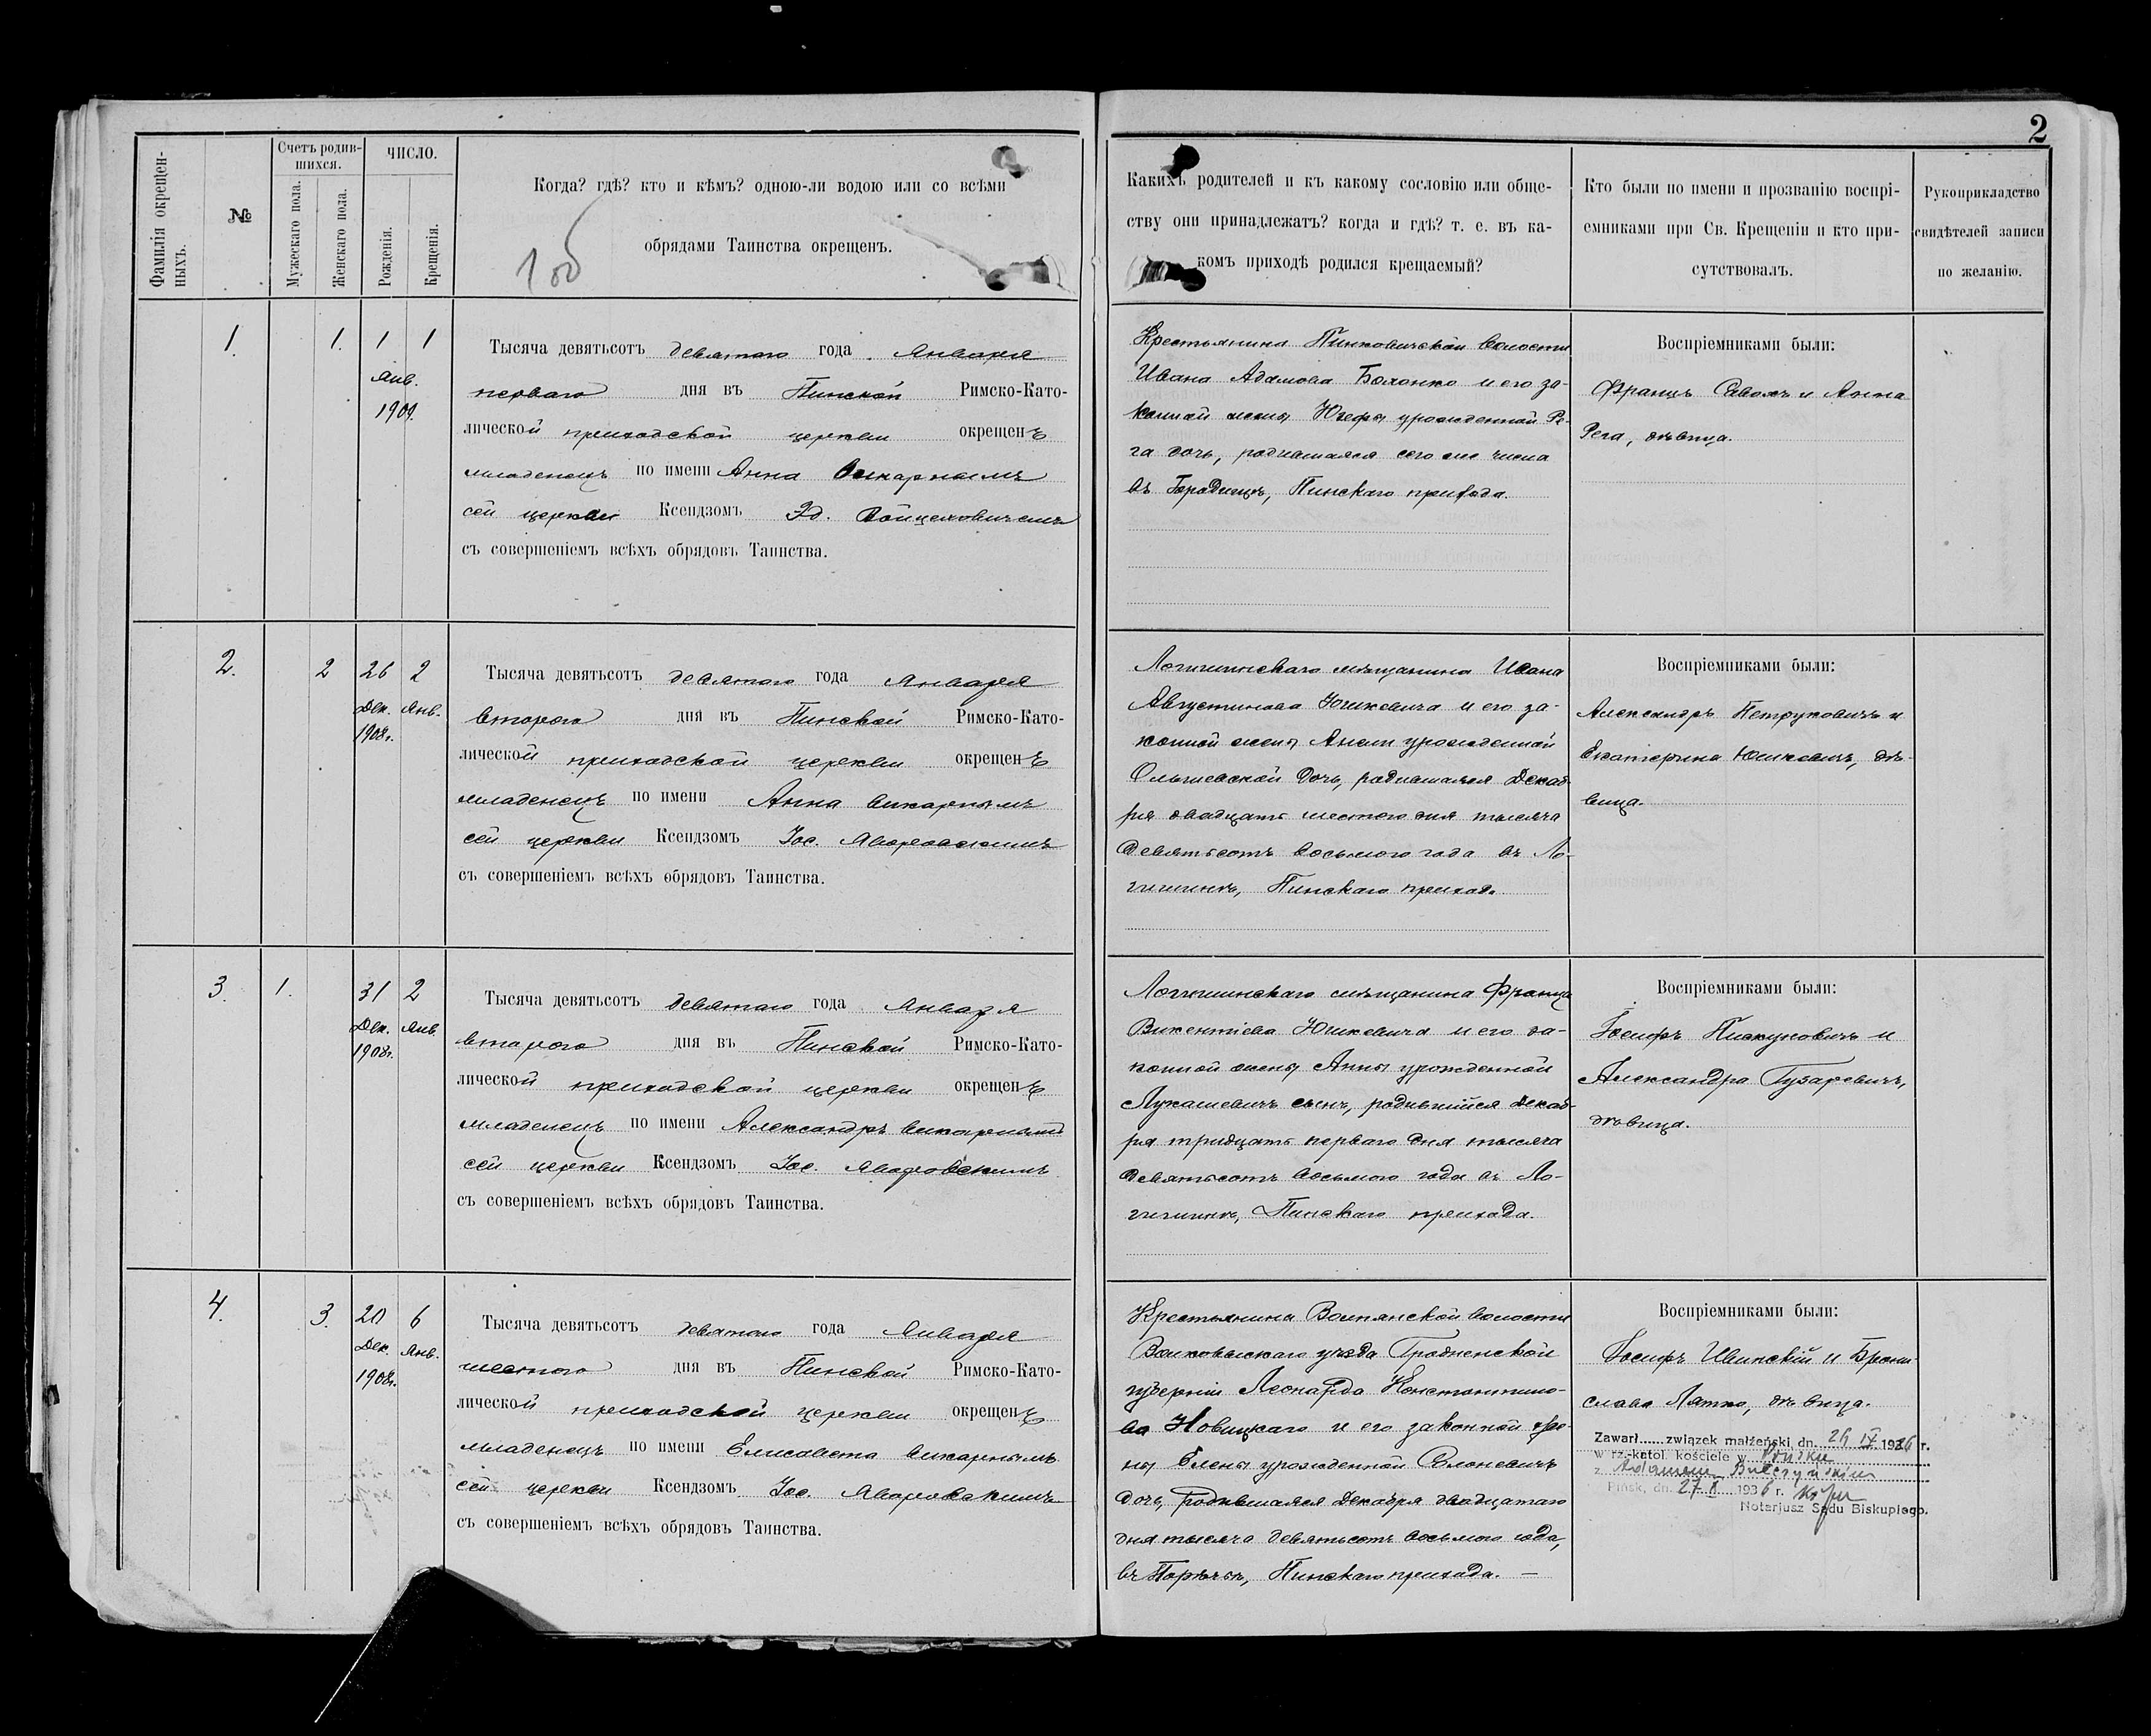 2
Фамилія окрещен-
ныхъ.
№
Счетъ родив-
шихся.
Мужескаго пола.
Женскаго пола.
ЧИСЛО.
Рожденія.
Крещенія.
Когда? гдѣ? кто и кѣмъ? одною-ли водою или со всѣми
обрядами Таинства окрещенъ.
100
Какихъ родителей и къ какому сословію или обще-
ству они принадлежатъ? когда и гдѣ? т. е. въ ка-
комъ приходѣ родился крещаемый?
Кто были по имени и прозванію воспрі-
емниками при Св. Крещеніи и кто при-
сутствовалъ.
Рукоприкладство
свидѣтелей записи
по желанію.
1. 1. 1 1
Янв.
1909.
Тысяча девятьсотъ девятаго года Января
перваго дня въ Пинской Римско-Като-
лической приходской церкви окрещенъ
младенецъ по имени Анна викарнымъ
сей церкви Ксендзомъ Эд. Войцеховичемъ
съ совершеніемъ всѣхъ обрядовъ Таинства.
Крестьянина Пинковичской волости
Ивана Адамова Болонко и его за-
конной жены Юзефы урожденной Ре-
га дочь, родившаяся сего же числа
въ Городищѣ, Пинскаго прихода.
Воспріемниками были:
Францъ и Анна
Рега, дѣвица.
2. 2 26 2
Дек. Янв.
1908г.
Тысяча девятьсотъ девятаго года Января
втораго дня въ Пинской Римско-Като-
лической приходской церкви окрещенъ
младенецъ по имени Анна викарнымъ
сей церкви Ксендзомъ Іос. Яворовскимъ
съ совершеніемъ всѣхъ обрядовъ Таинства.
Логишинскаго мѣщанина Ивана
Августинова Юшкевича и его за-
конной жены урожденной
Ольшевской дочь, родившаяся Декаб-
ря двадцать шестого дня тысяча
девятьсотъ восьмого года въ Ло-
гишинѣ, Пинскаго прихода.
Воспріемниками были:
Александръ Петруковичъ и
Екатерина Юшкевичъ, дѣ-
вица.
3. 1. 31 2
Дек. Янв.
1908г.
Тысяча девятьсотъ девятаго года Января
втараго дня въ Пинской Римско-Като-
лической приходской церкви окрещенъ
младенецъ по имени Александръ викарнымъ
сей церкви Ксендзомъ Іос. Яворовскимъ
съ совершеніемъ всѣхъ обрядовъ Таинства.
Логишинскаго мѣщанина Франца
Викентіева Юшкевича и его за-
конной жены Анны урожденной
Лукашевичъ сынъ, родившійся Декаб-
ря тридцать перваго дня тысяча
девятьсотъ восьмого года въ Ло-
гишинѣ, Пинскаго прихода.
Воспріемниками были:
Іосифъ Пискуновичъ и
Александра Гузаревичъ,
дѣвица.
4. 3. 20 6
Дек. Янв.
1908г.
Тысяча девятьсотъ девятаго года Января
шестого дня въ Пинской Римско-Като-
лической приходской церкви окрещенъ
младенецъ по имени Елисавета викарнымъ
сей церкви Ксендзомъ Іос. Яворовскимъ
съ совершеніемъ всѣхъ обрядовъ Таинства.
Крестьянина Волпянской волости
Волковыскаго уѣзда Гродненской
губерніи Леонарда Константино-
ва Новицкаго и его законной же-
ны Елены урожденной
дочь, родившаяся Декабря двадцатаго
дня тысяча девятьсотъ восьмого года,
въ Порѣчьѣ, Пинскаго прихода. —
Воспріемниками были:
Іосифъ Ивинскій и Брони-
слава Лятко, дѣвица.
Zawarł..... związek małżeński, dn. 26 IX 1936 r.
w rz.-katol. kościele w Pińsku
z Adamem
Pińsk, dn. 27 X 1936 r.
Notarjusz Sądu Biskupiego.